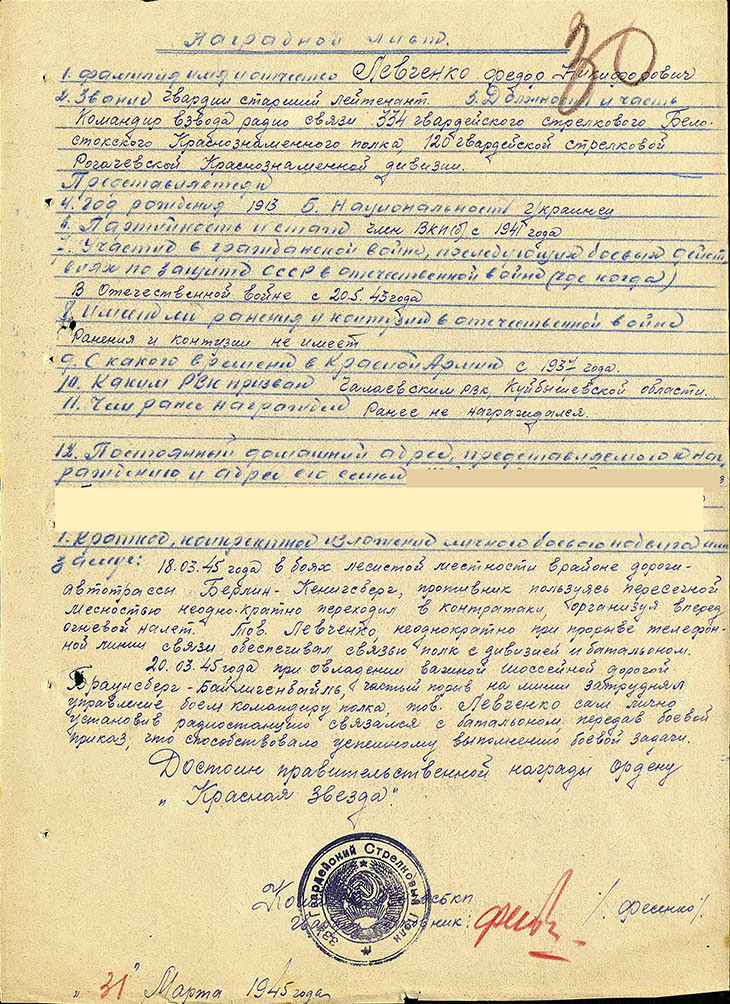 Наградной лист.
30
1. фамилия имя и отчество Левченко Федор Никифорович
2. Звание гвардии старший лейтенант. 3. Должность и часть
Командир взвода радио связи 334 гвардейского стрелкового Бело-
стокского Краснознаменного полка, 120 гвардейской стрелковой
Рогачевской Краснознаменной дивизии.
Представляется
4. Год рождения 1913 5. Национальность Украинец
6. Партийность и стаж член ВКП(б) с 1941 года
7. Участие в гражданской войне, последующих боевых дейст-
виях по защите СССР в отечественной войне (где когда)
В Отечественной войне с 20.5.43 года
8. Имеет ли ранения и контузии в отечественной войне
Ранения и контузии не имеет
9. С какого времени в Красной Армии с 1937 года.
10. Каким РВК призван Чапаевским РВК, Куйбышевской области.
11. Чем ранее награжден Ранее не награждался.
12. Постоянный домашний адрес, представляемого к наг-
раждению и адрес его семьи
1. Краткое, конкретное изложение личного боевого подвига или
заслуг: 18.03.45 года в боях лесистой местности в районе дороги-
автотрассы Берлин-Кенигсберг, противник пользуясь пересечной
месностью неодно-кратно переходил в контратаки, организуя вперед
огневой налет. Тов. Левченко, неоднократно при прорыве телефон-
ной линии связи обеспечивал связью полк с дивизией и батальоном.
20.03.45 года при овладении важной шоссейной дорогой
Браунсберг-Байлигенбайль, частый порыв на линии затруднял
управление боем командиру полка, тов. Левченко сам лично
установив радиостанцию связался с батальоном, передав боевой
приказ, что способствовало успешному выполнению боевой задачи.
Достоин правительственной награды ордену
„Красная звезда".
334 Гвардейский Стрелковый Полк
/Фесенко/
„31" Марта 1945 года